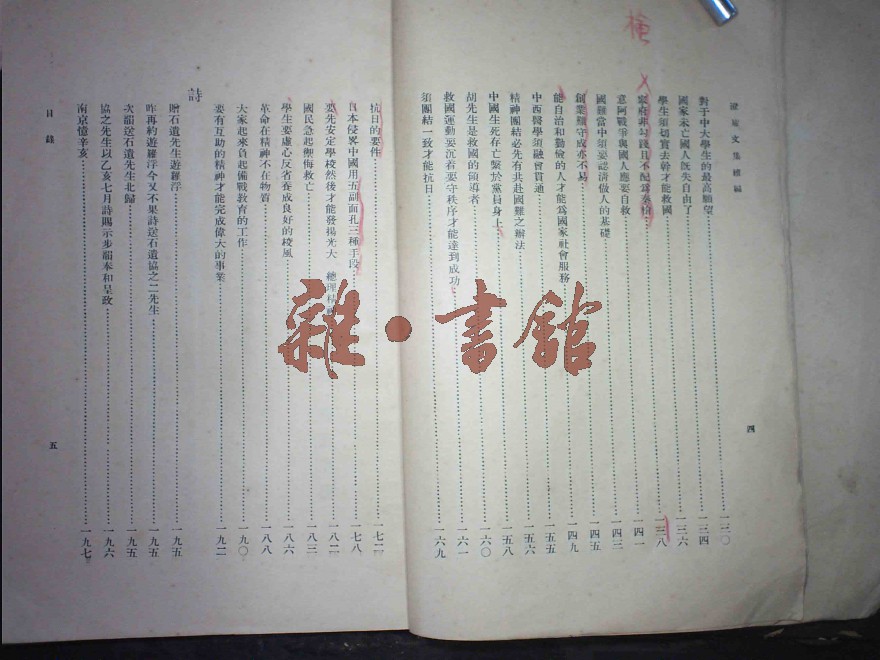 檢 入
澄廬文集續編
四
對于中大學生的最高願望……一三〇
國家未亡國人旣失自由了……一三四
學生須切實去幹才能救國……一三六
非勾踐且不配爲秦檜……一三八
意阿戰爭與國人應要自救……一四一
國難當中須要認淸做人的基礎……一四三
創業難守成亦不易……一四五
能自治和勤儉的人才能爲國家社會服務……一四九
中西醫學須融會貫通……一五五
精神團結必先有共赴國難之辦法……一五六
中國生死存亡繫於黨員身上……一五八
胡先生是救國的領導者……一六〇
救國運動要沉着要守秩序才能達到成功……一六一
須團結一致才能抗日……一六九
抗日的要件……一七二
日本侵畧中國用五副面孔三種手段……一七八
要先安定學校然後才能發揚光大 總理精神……一八二
國民急起禦侮救亡……一八三
學生要虛心反省養成良好的校風……一八六
革命在精神不在物質……一八八
大家起來負起備戰敎育的工作……一九〇
要有互助的精神才能完成偉大的事業……一九二
詩
贈石遺先生遊羅浮……一九五
昨再約遊羅浮今又不果詩送石遺協之二先生……一九五
次韻送石遺先生北歸……一九五
協之先生以乙亥七月詩賜示步韻奉和呈政……一九六
南京憶辛亥……一九七
目錄
五
雜·書館